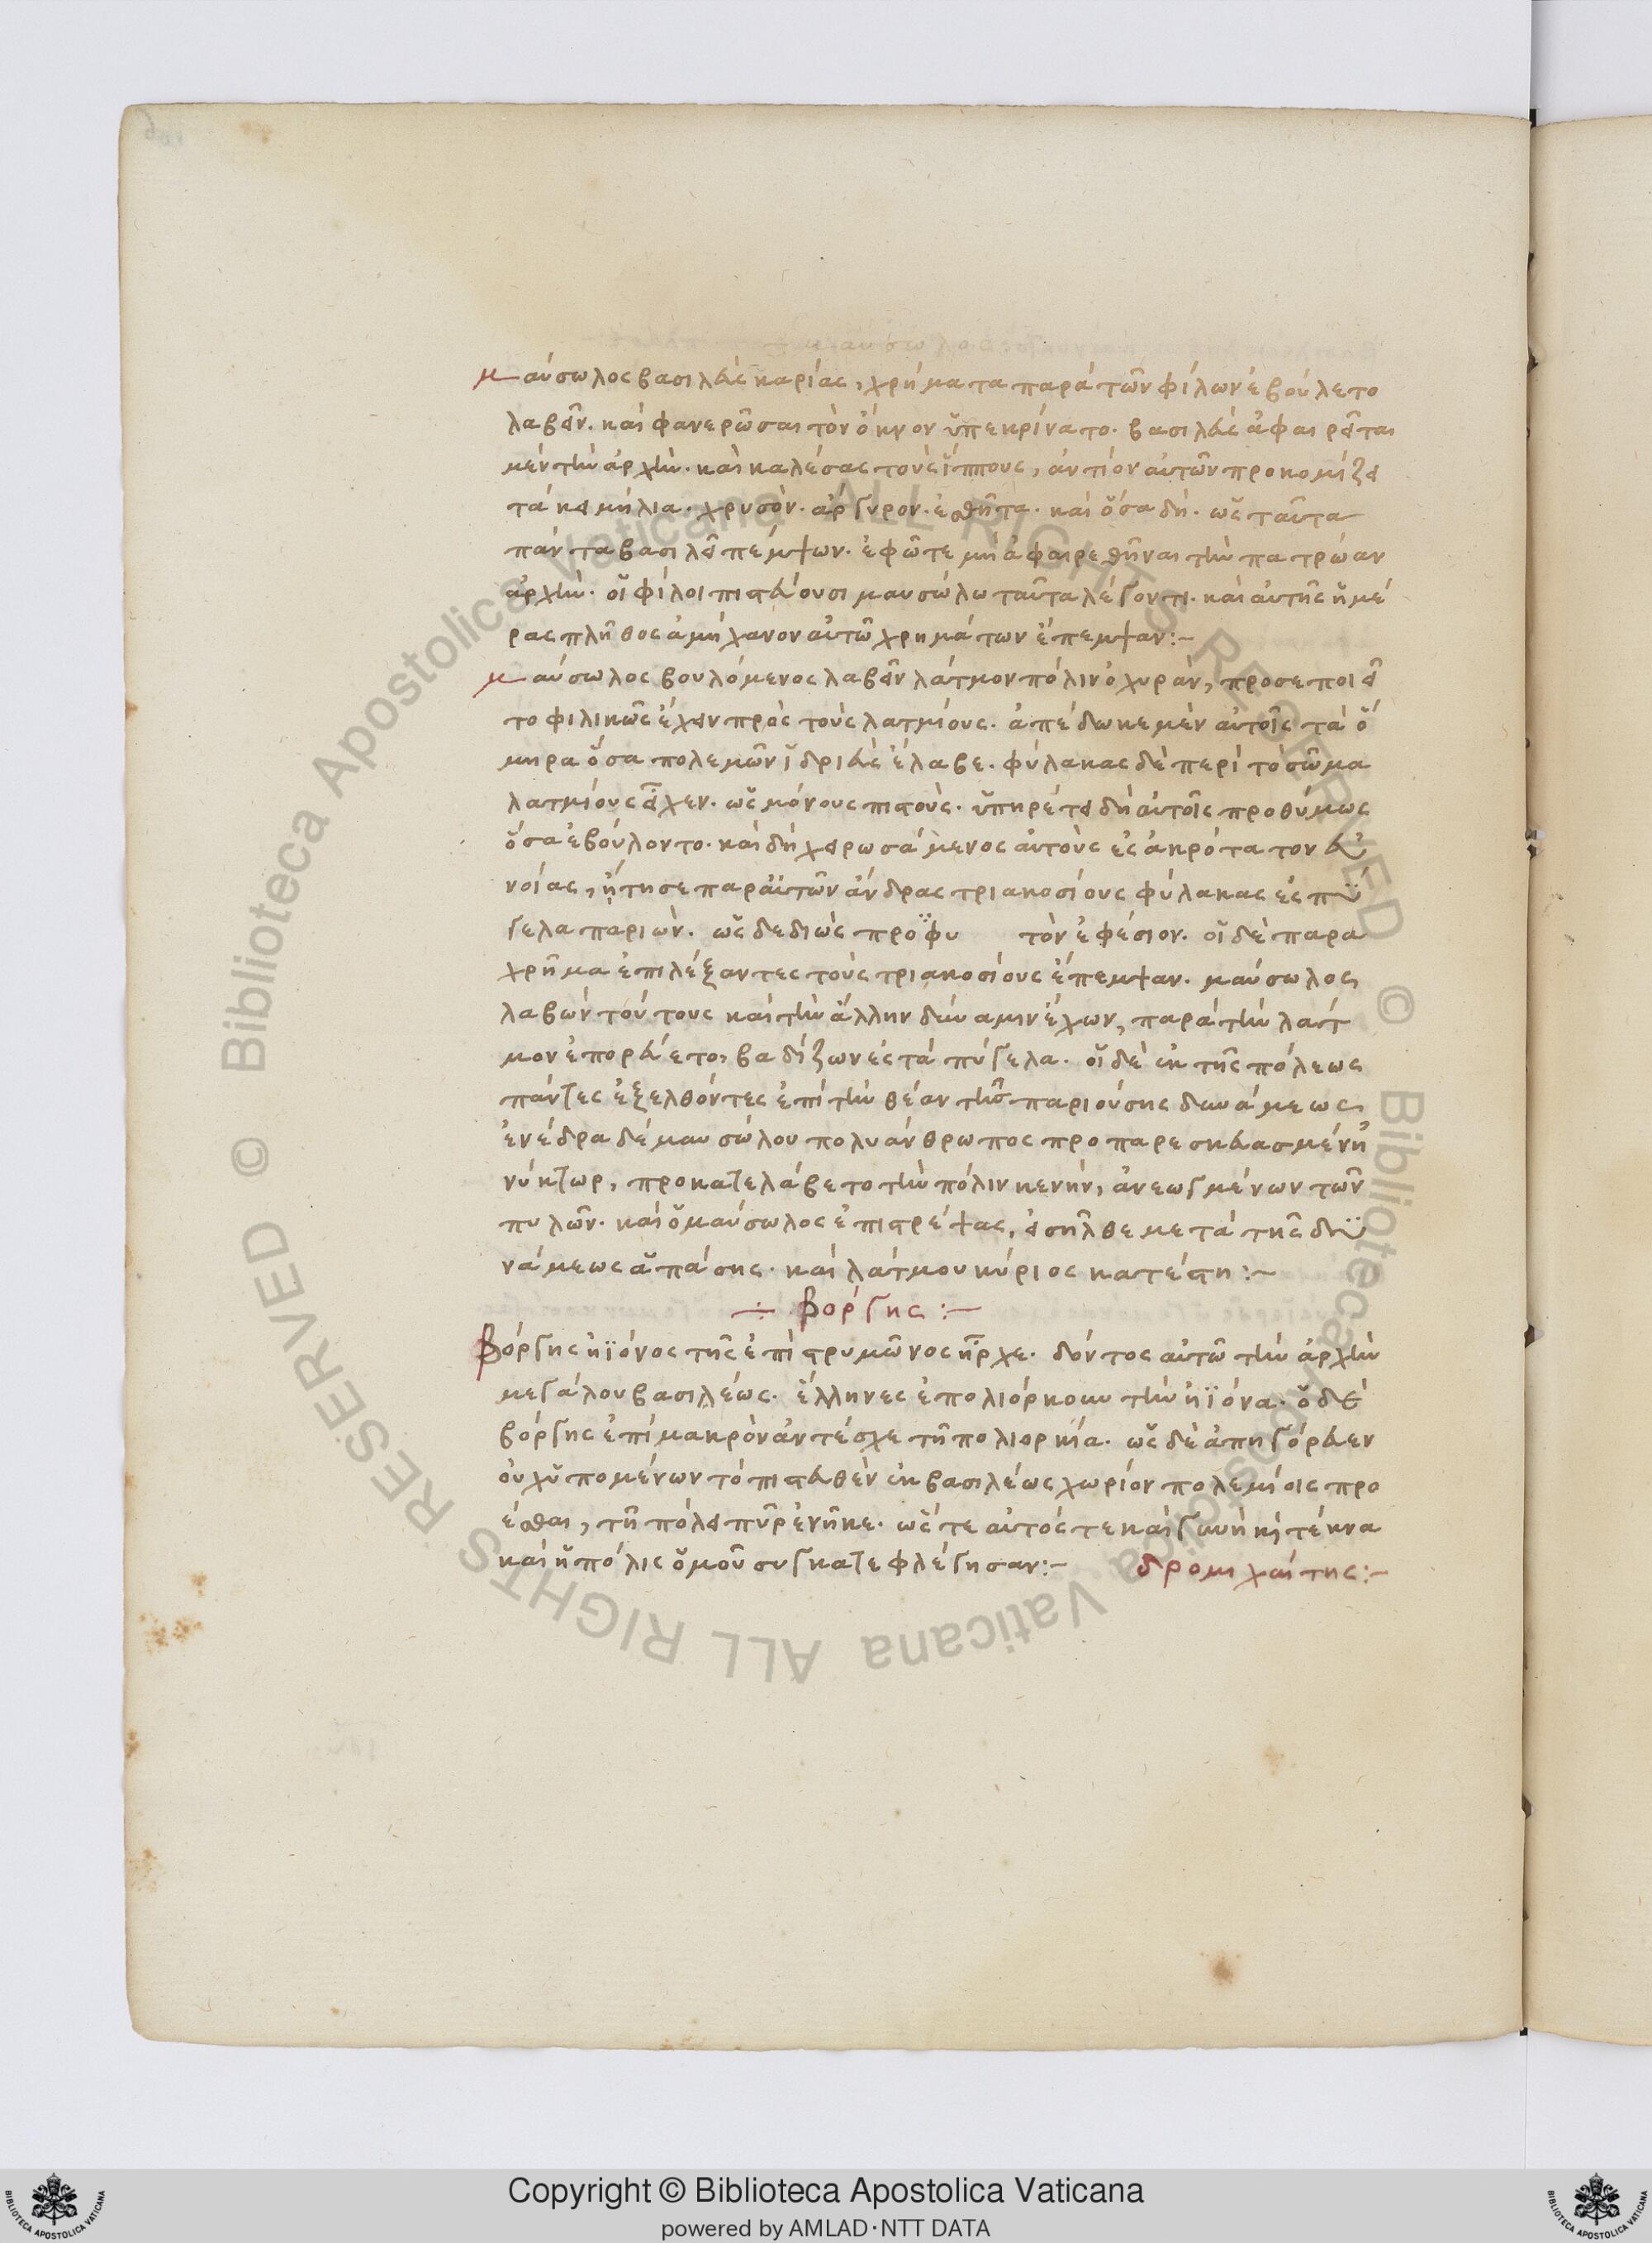 μαύσωλος βασιλεὺς καρίας, χρήματα παρὰ τῶν φίλων ἐβούλετο
λαβεῖν. καὶ φανερῶσαι τὸν ὄκνον ὑπεκρίνατο. βασιλεὺς ἀφαιρεῖται
μὲν τὴν ἀρχήν. καὶ καλέσας τοὺς ἵππους, ἀντίον αὐτῶν προκομίζει
τὰ κειμήλια. χρυσὸν. ἄργυρον. ἐσθῆτα. καὶ ὅσα δή. ὡς ταῦτα
πάντα βασιλεῖ πέμψων. ἐφῶτε μὴ ἀφαιρεθῆναι τὴν πατρώαν
ἀρχήν. οἱ φίλοι πιστεύουσι μαυσώλω ταῦτα λέγοντι. καὶ αὐτῆς ἡμέ
ρας πλῆθος ἀμήχανον αὐτῶ χρημάτων ἔπεμψαν:~
μαύσωλος βουλόμενος λαβεῖν λάτμον πόλιν ὀχυρὰν, προσεποιεῖ
το φιλικῶς ἔχειν πρὸς τοὺς λατμίους. ἀπέδωκε μὲν αὐτοῖς τὰ ὅ
μηρα ὅσα πολεμῶν ἱδριεὺς ἔλαβε. φύλακας δὲ περὶ τὸ σῶμα
λατμίους εἶχεν. ὡς μόνους πιστούς. ὑπηρέτει δὴ αὐτοῖς προθύμως
ὅσα ἐβούλοντο. καὶ δὴ χειρωσάμενος αὐτοὺς ἐς ἀκρότατον εὐ
νοίας, ἤτησε παρ αὐτῶν ἄνδρας τριακοσίους φύλακας ἐς πύ
γελα παριών. ὡς δεδιὼς προφυ τὸν ἐφέσιον. οἱ δὲ παρα
χρῆμα ἐπιλέξαντες τοὺς τριακοσίους ἔπεμψαν. μαύσωλος
λαβὼν τούτους καὶ τὴν ἄλλην δύναμιν ἔχων, παρὰ τὴν λάτ
μον ἐπορεύετο, βαδίζων ἐς τὰ πύγελα. οἱ δὲ ἐκ τῆς πόλεως
πάντες ἐξελθόντες ἐπὶ τὴν θέαν τῆς παριούσης δυνάμεως,
ἐνέδρα δὲ μαυσώλου πολυάνθρωπος προπαρεσκευασμένη
νύκτωρ, προκατελάβετο τὴν πόλιν κενήν, ἀνεωγμένων τῶν
πυλῶν. καὶ ὁ μαύσωλος ἐπιστρέψας, εἰσῆλθε μετὰ τῆς δυ
νάμεως ἁπάσης. καὶ λάτμου κύριος κατέστη:~
÷ βόργης:~
βόργης ἠϊόνος τῆς ἐπὶ στρυμῶνος ἦρχε. δόντος αὐτῶ τὴν ἀρχὴν
μεγάλου βασιλέως. ἕλληνες ἐπολιόρκουν τὴν ἠϊόνα. ὁ δὲ
βόργης ἐπὶ μακρὸν ἀντέσχε τῆ πολιορκία. ὡς δὲ ἀπηγόρευεν
οὐχ ὑπομένων τὸ πιστευθὲν ἐκ βασιλέως χωρίον πολεμίοις προ
έσθαι, τῆ πόλει πῦρ ἐνῆκε. ὥστε αὐτός τε καὶ γυνὴ κὶ τέκνα
καὶ ἡ πόλις ὁμοῦ συγκατεφλέγησαν:~ δρομιχαίτης:~
Copyright © Biblioteca Apostolica Vaticana
powered by AMLAD·NTT DATA
© Biblioteca Apostolica Vaticana ALL RIGHTS RESERVED
© Biblioteca Apostolica Vaticana ALL RIGHTS RESERVED
BIBLIOTECA APOSTOLICA VATICANA
BIBLIOTECA APOSTOLICA VATICANA